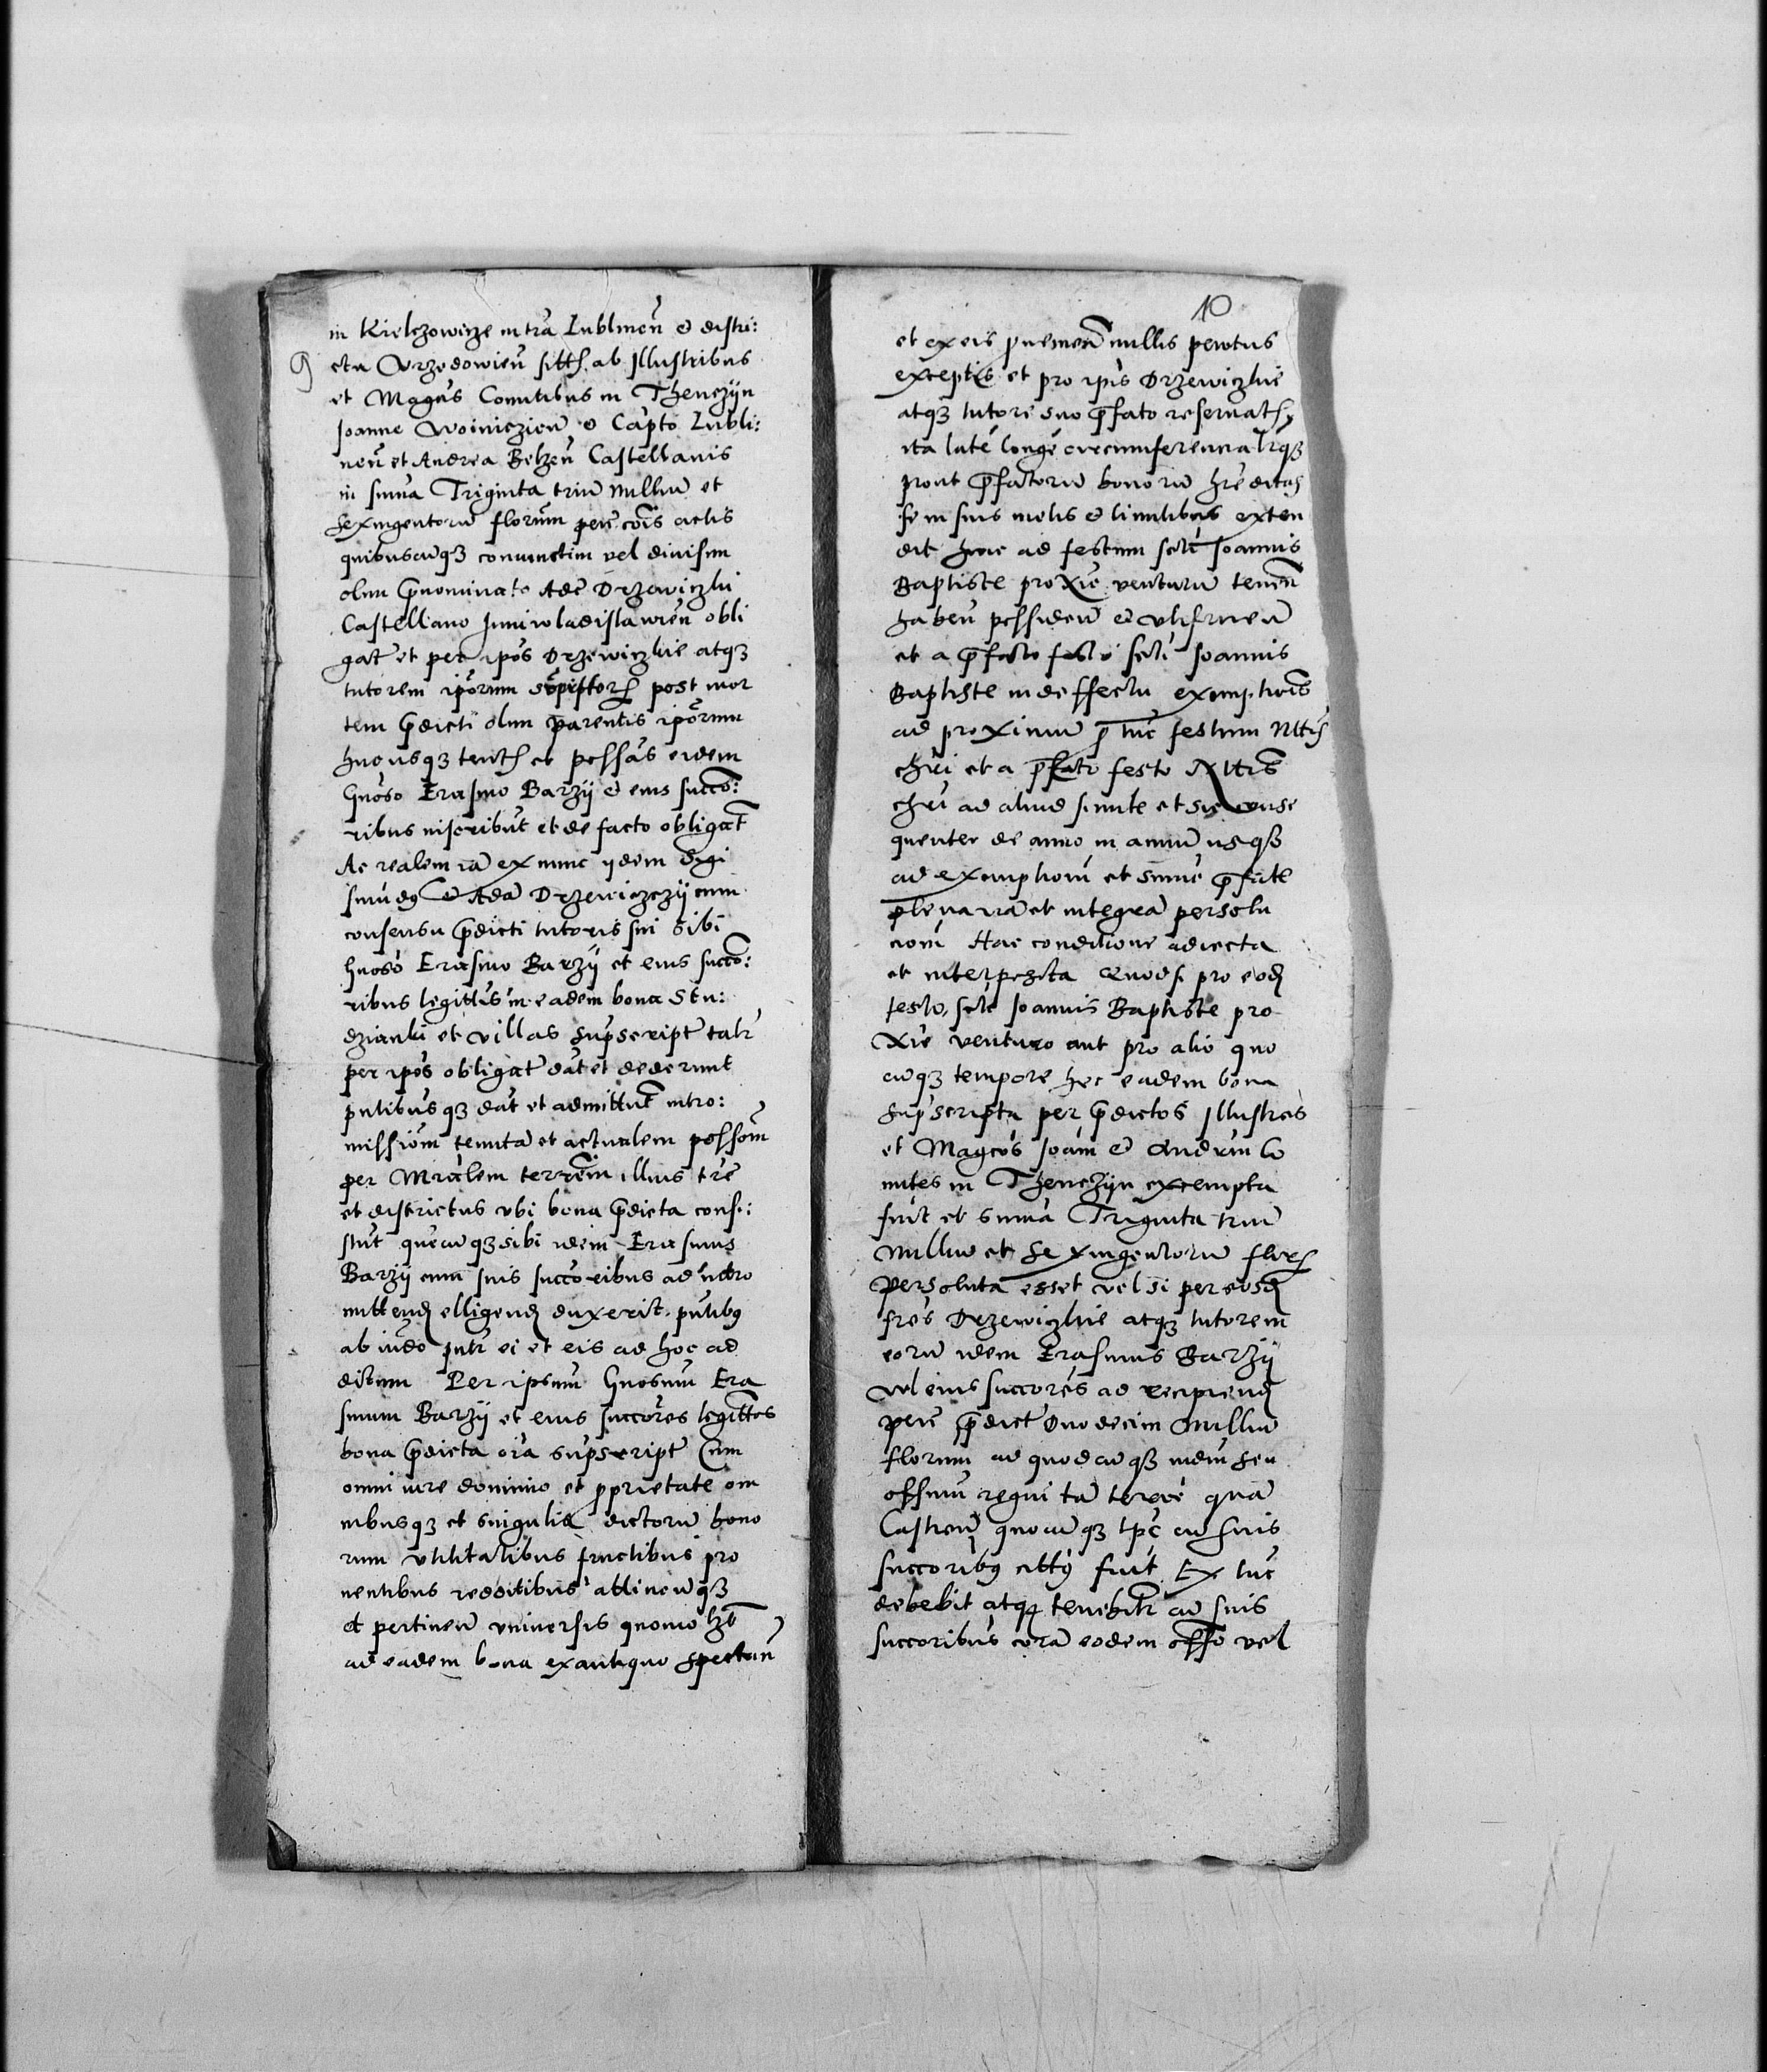 9
in Kielczowicze in tra Lublinen et distri:
ctu Vrzedowien sitis ab Illustribus
et Magcis Comitibus in Thenczijn
Joanne Woiniczien et Capto Lubli:
nen et Andrea Belzen Castellanis
in suma Triginta triu milliu et
sexingentoru florum pecu cois actis
quibuscuqz coniunctim vel diuisim
olim prenominato Ade Drzewiczki
Castellano Juniwladislawien obli
gat et per ipos Drzewiczkie atqz
tutorem iporum post mor
tem predicti olim parentis iporum
hucusqz tent et possas eidem
Gnoso Erasmo Barzij et eius succo:
ribus inscribut et de facto obligat
Ac realem ia ex nunc ijdem
et Ada Drzewiczczij cum
consensu predicti tutoris sui sibi
Gnoso Erasmo Barzij et eius succo:
ribus legittis in eadem bona Stu:
dzianki et villas supscript talr
per ipos obligat dat et dederunt
pntibusqz dat et admittut intro:
missiom tenuta et actualem possom
per Mrialem terrem illius tre
et districtus vbi bona predicta consi:
stut quecuqz sibi idem Erasmus
Barzij cum suis succoribus ad intro
mittend elligend duxerit pntibus
ab iudo pntr ei et eis ad hoc ad
dictum Per ipsum Gnosum Era
smum Barzij et eius succores legittos
bona predicta oia supscript Cum
omni iure dominio et pprietate om
nibusqz et singulis dictoru bono
rum vtilitatibus fructibus pro
uentibus redditibus attinenqz
et pertinen vniuersis quomo
ad eadem bona ex antiquo spectan
10
et ex eis puenien nullis penitus
exceptis et pro ipis Drzewiczkie
atqz tutore suo prefato reseruatis
ita late longe circumferencialrqz
prout prefatoru bonoru hreditas
se in suis metis et limitibus exten
dit hinc ad festum scti Joannis
Baptiste proxie venturu tenen
haben possiden et vtifruen
et a prefacto festo scti Joannis
Baptiste in deffectu exemptiois
ad proximu p tuc festum Nttis
chri et a prefato festo Nttis
chri ad aliud simile et sic conse
quenter de anno in annu usqz
ad exemptiom et sume prefate
plenaria et integra persolu
ciom Hac conditione adiecta
et interposita Quod si pro eod
festo scti Joannis Baptiste pro
xie venturo aut pro alio quo
cuqz tempore hec eadem bona
supscripta per predictos Illustres
et Magcos Joam et Andream Co
mites in Thenczijn exempta
fuit et suma Triginta triu
milliu et sexingentoru flor
persoluta esset vel si per eosd
fres Drzewiczkie atqz tutorem
eoru idem Erasmus Barzij
vel eius succores ad recipiend
pecu predict duodecim milliu
florum ad quodcuqz iudm seu
offium regni ta terre qua
Castren quocuqz tpe cu suis
succoribus cittus fuit Ex tuc
debebit atqz tenebitr cu suis
succoribus cora eodem offo vel